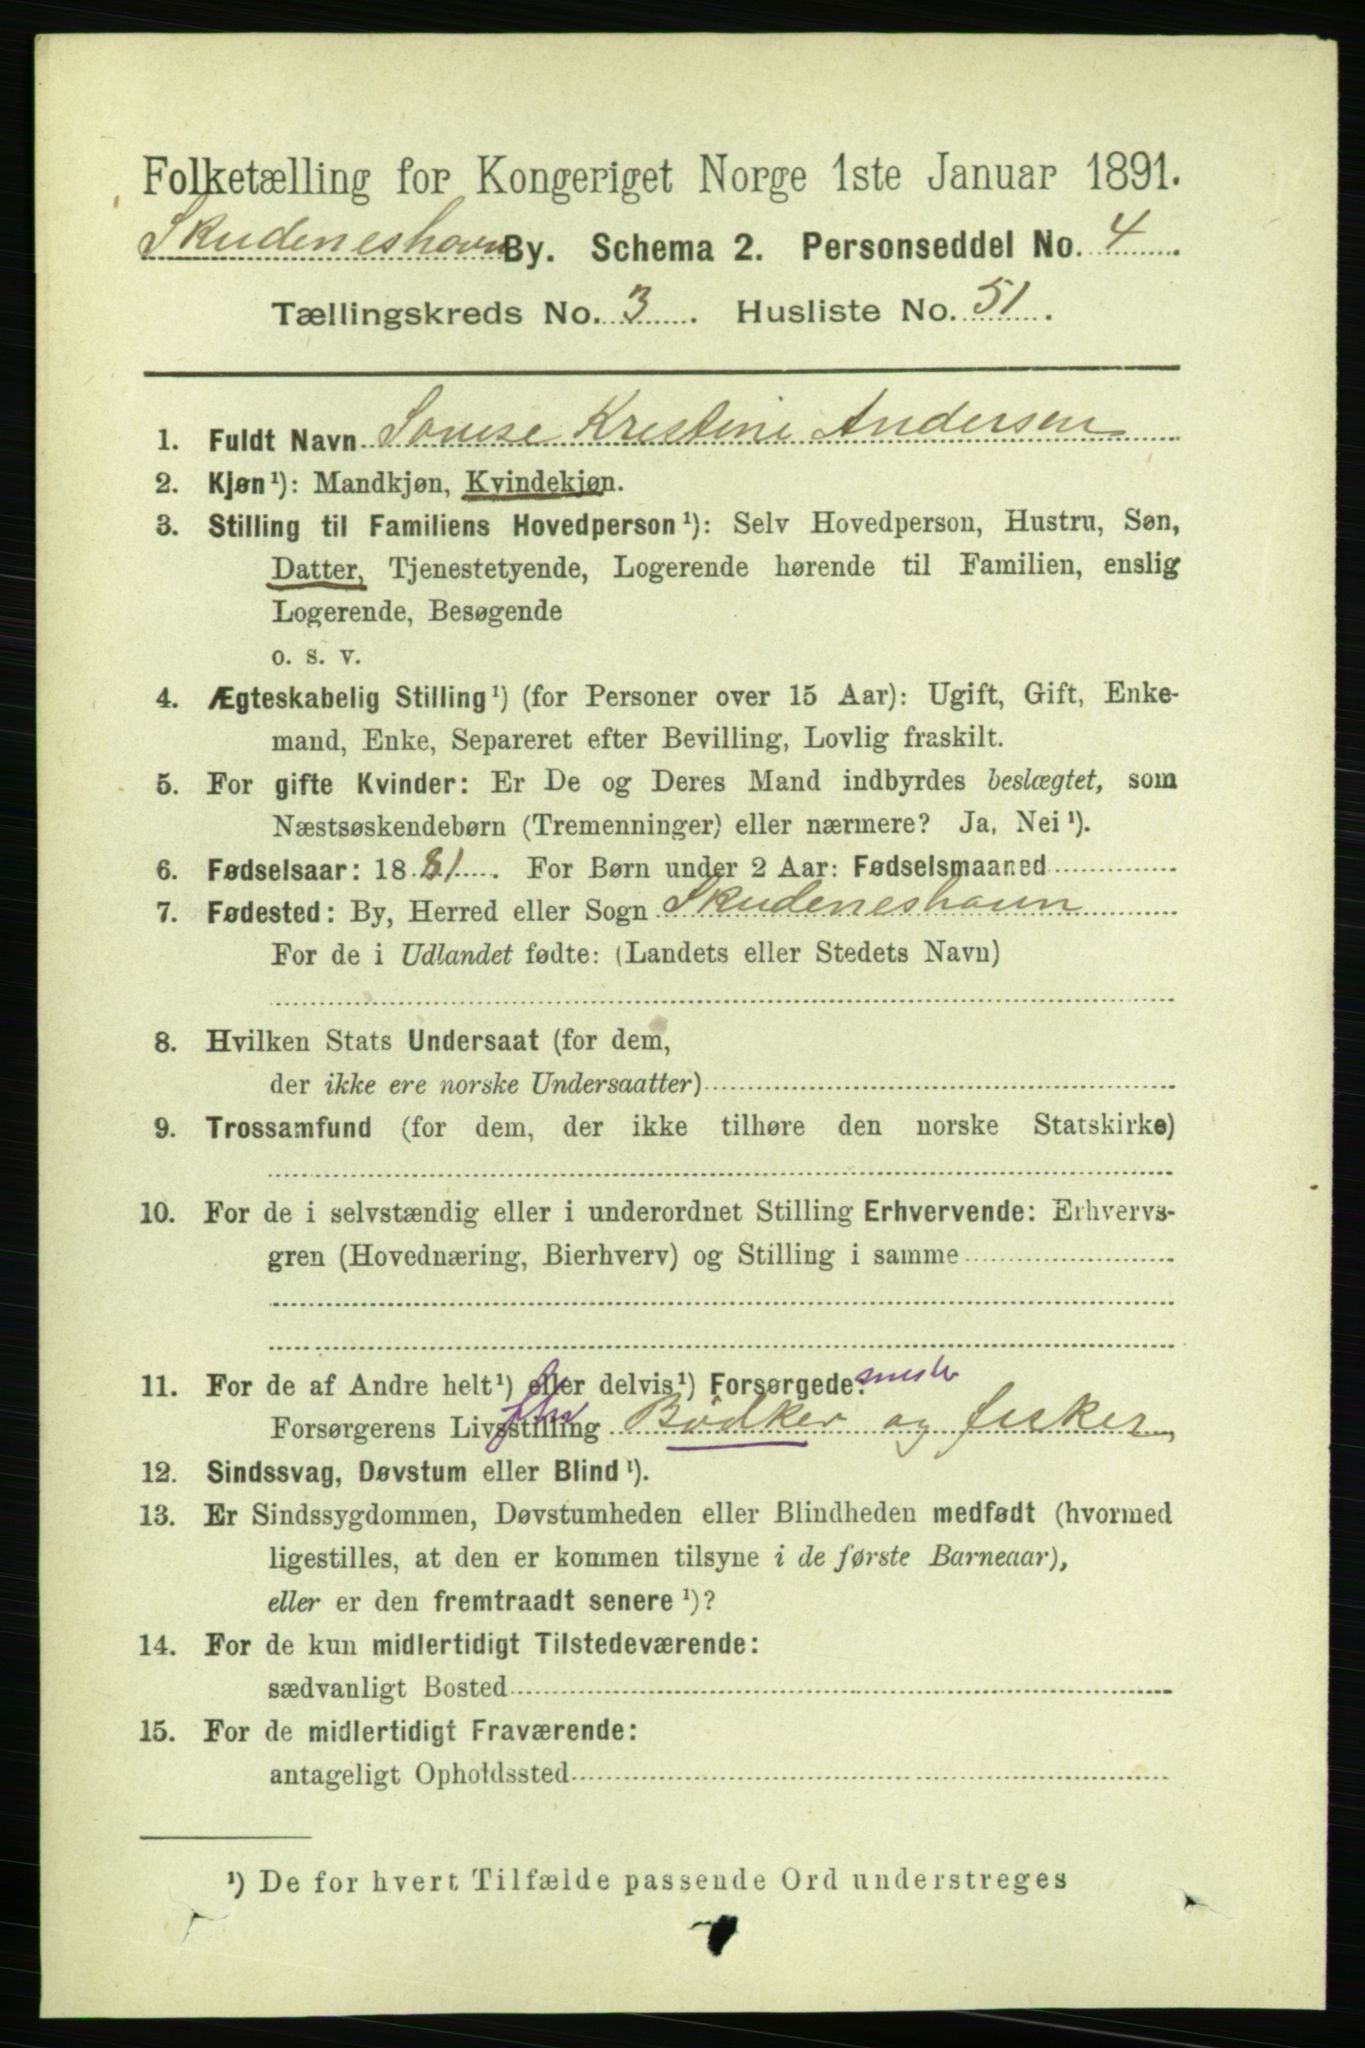 Folketælling for Kongeriget Norge 1ste Januar 1891.
Skudeneshavn By. Schema 2. Personseddel No. 4
Tællingskreds No. 3. Husliste No. 51.
1. Fuldt Navn Lovise Kristine Andersen
2. Kjøn¹): Mandkjøn, Kvindekjøn.
3. Stilling til Familiens Hovedperson¹): Selv Hovedperson, Hustru, Søn,
Datter, Tjenestetyende, Logerende hørende til Familien, enslig
Logerende, Besøgende
o. s. v.
4. Ægteskabelig Stilling¹) (for Personer over 15 Aar): Ugift, Gift, Enke-
mand, Enke, Separeret efter Bevilling, Lovlig fraskilt.
5. For gifte Kvinder: Er De og Deres Mand indbyrdes beslægtet, som
Næstsøskendebørn (Tremenninger) eller nærmere? Ja, Nei¹).
6. Fødselsaar: 1881. For Børn under 2 Aar: Fødselsmaaned
7. Fødested: By, Herred eller Sogn Skudeneshavn
For de i Udlandet fødte: (Landets eller Stedets Navn)
8. Hvilken Stats Undersaat (for dem,
der ikke ere norske Undersaatter)
9. Trossamfund (for dem, der ikke tilhøre den norske Statskirke)
10. For de i selvstændig eller i underordnet Stilling Erhvervende: Erhvervs-
gren (Hovednæring, Bierhverv) og Stilling i samme
11. For de af Andre helt¹) eller delvis¹) Forsørgede:
Forsørgerens Livsstilling Bødker og fisker
12. Sindssvag, Døvstum eller Blind¹).
13. Er Sindssygdommen, Døvstumheden eller Blindheden medfødt (hvormed
ligestilles, at den er kommen tilsyne i de første Barneaar),
eller er den fremtraadt senere¹)?
14. For de kun midlertidigt Tilstedeværende:
sædvanligt Bosted
15. For de midlertidigt Fraværende:
antageligt Opholdssted
¹) De for hvert Tilfælde passende Ord understreges